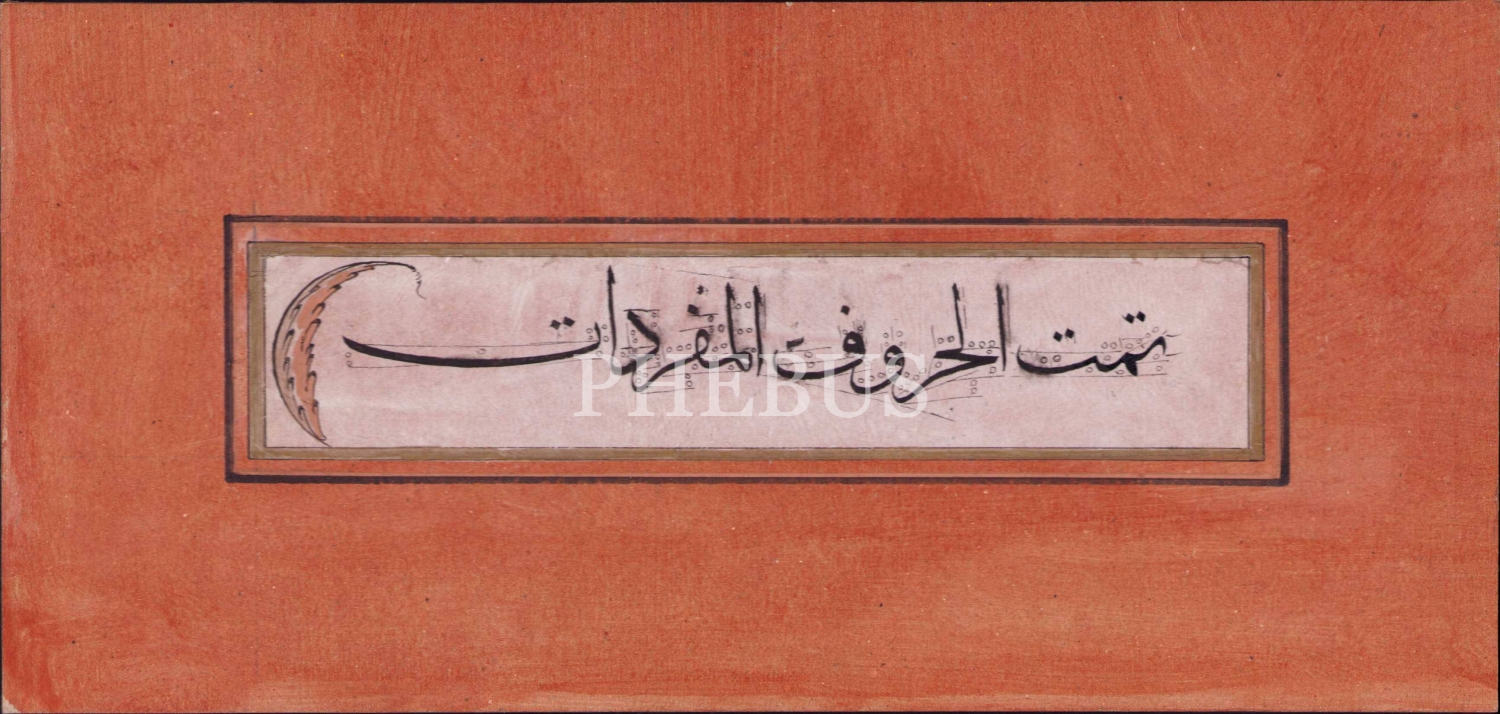 تمت الحروف المفردات
PHEBUS